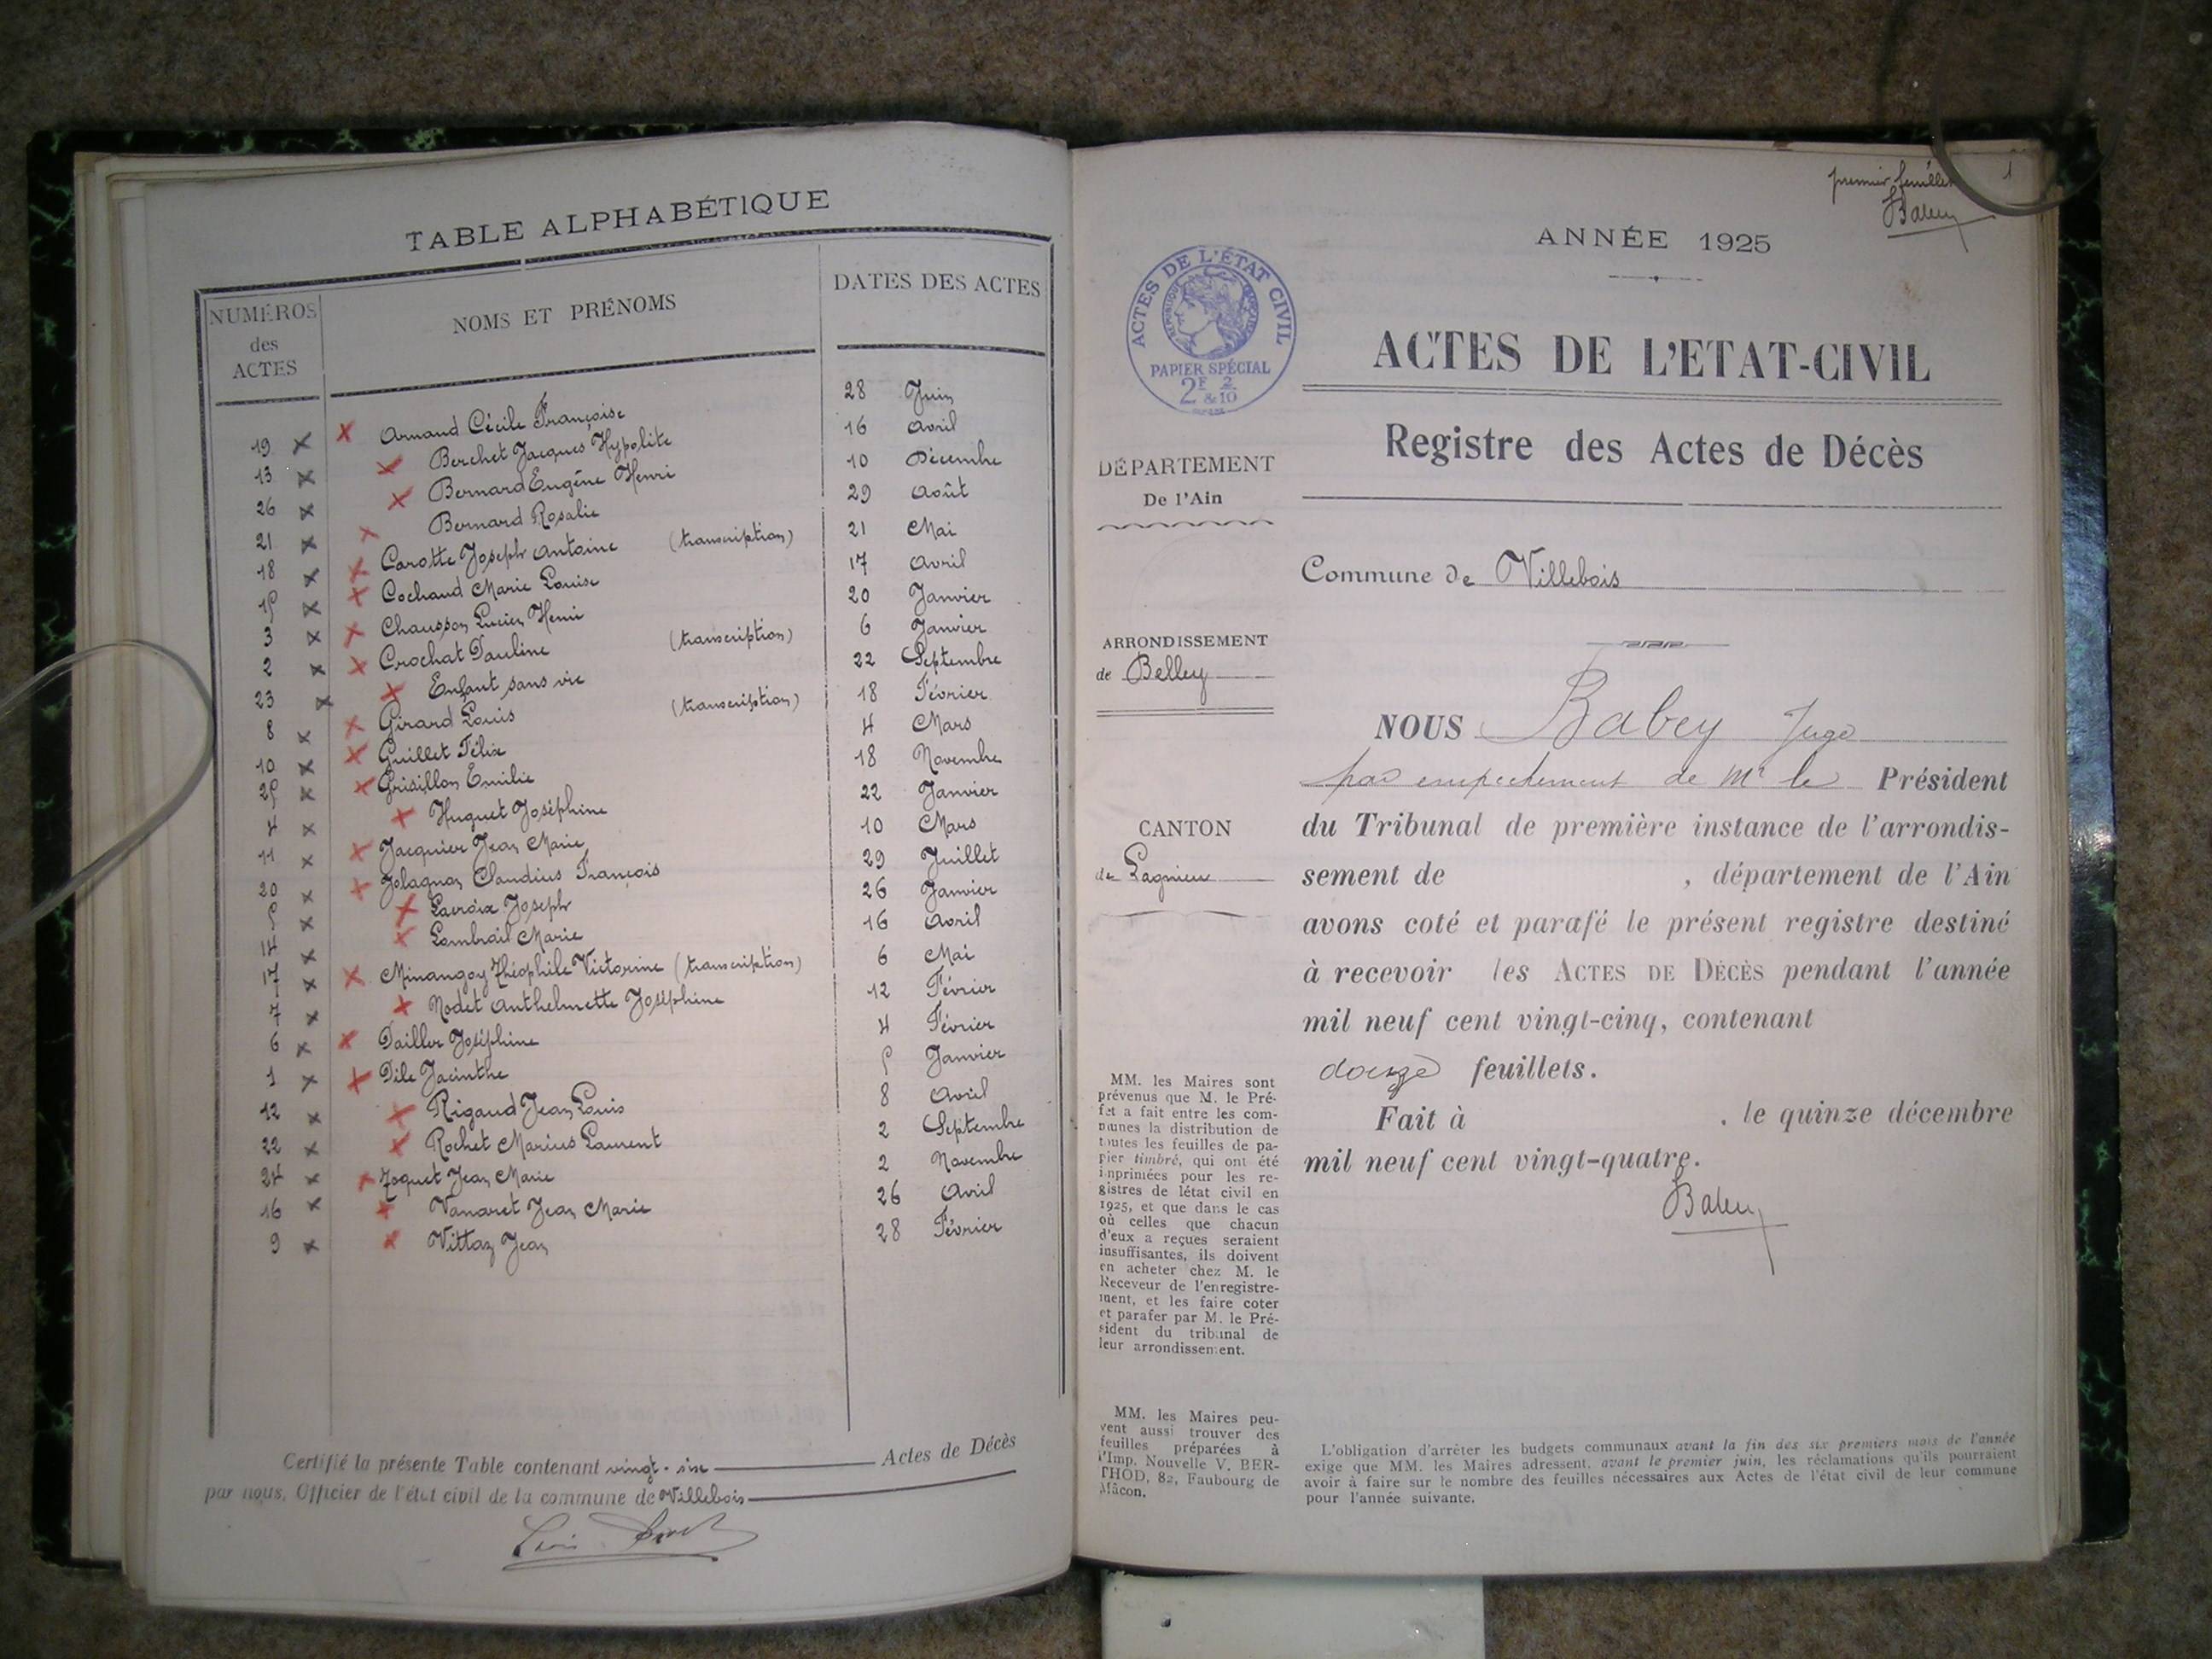 TABLE ALPHABÉTIQUE
NUMÉROS des ACTES
NOMS ET PRÉNOMS
DATES DES ACTES
19 x x Arnaud Cécile Françoise 28 Juin
13 x x Berchet Jacques Hypolite 16 Avril
26 x x Bernard Eugène Henri 10 Décembre
21 x x Bernard Rosalie 29 Août
18 x x Carotte Joseph Antoine (transcription) 21 Mai
15 x x Cochaud Marie Louise 17 Avril
3 x x Chausson Lucien Henri 20 Janvier
2 x x Crochat Pauline (transcription) 6 Janvier
23 x x Enfant sans vie 22 Septembre
8 x x Girard Louis (transcription) 18 Février
10 x x Guillet Félix 4 Mars
25 x x Grisillon Emilie 18 Novembre
4 x x Huguet Joséphine 22 Janvier
11 x x Jacquier Jean Marie 10 Mars
20 x x Jolagnon Claudius François 29 Juillet
5 x x Lacroix Joseph 26 Janvier
14 x x Lombrail Marie 16 Avril
17 x x Minangoy Théophile Victorine (transcription) 6 Mai
7 x x Nodet Anthelmette Joséphine 12 Février
6 x x Pailler Joséphine 4 Février
1 x x Pile Jacinthe 5 Janvier
12 x x Rigaud Jean Louis 8 Avril
22 x x Rochet Marius Laurent 2 Septembre
24 x x Toquet Jean Marie 2 Novembre
16 x x Vanaret Jean Marie 26 Avril
9 x x Vittaz Jean 28 Février
Certifié la présente Table contenant vingt-six Actes de Décès
par nous, Officier de l'état civil de la commune de Villebois
premier feuillet 1
Babey
ANNÉE 1925
ACTES DE L'ÉTAT CIVIL
RÉPUBLIQUE FRANÇAISE
PAPIER SPÉCIAL
2F 2
&10
ACTES DE L'ETAT-CIVIL
Registre des Actes de Décès
DÉPARTEMENT
De l'Ain
Commune de Villebois
ARRONDISSEMENT
de Belley
CANTON
de Lagnieu
NOUS Babey Juge
par empechement de Mr le Président
du Tribunal de première instance de l'arrondis-
sement de , département de l'Ain
avons coté et parafé le présent registre destiné
à recevoir les ACTES DE DÉCÈS pendant l'année
mil neuf cent vingt-cinq, contenant
douze feuillets.
Fait à , le quinze décembre
mil neuf cent vingt-quatre.
Babey
MM. les Maires sont
prévenus que M. le Pré-
fet a fait entre les com-
munes la distribution de
toutes les feuilles de pa-
pier timbré, qui ont été
imprimées pour les re-
gistres de létat civil en
1925, et que dans le cas
où celles que chacun
d'eux a reçues seraient
insuffisantes, ils doivent
en acheter chez M. le
Receveur de l'enregistre-
ment, et les faire coter
et parafer par M. le Pré-
sident du tribunal de
leur arrondissement.
MM. les Maires peu-
vent aussi trouver des
feuilles préparées à
l'Imp. Nouvelle V. BER-
THOD, 82, Faubourg de
Mâcon.
L'obligation d'arrêter les budgets communaux avant la fin des six premiers mois de l'année
exige que MM. les Maires adressent, avant le premier juin, les réclamations qu'ils pourraient
avoir à faire sur le nombre des feuilles nécessaires aux Actes de l'état civil de leur commune
pour l'année suivante.